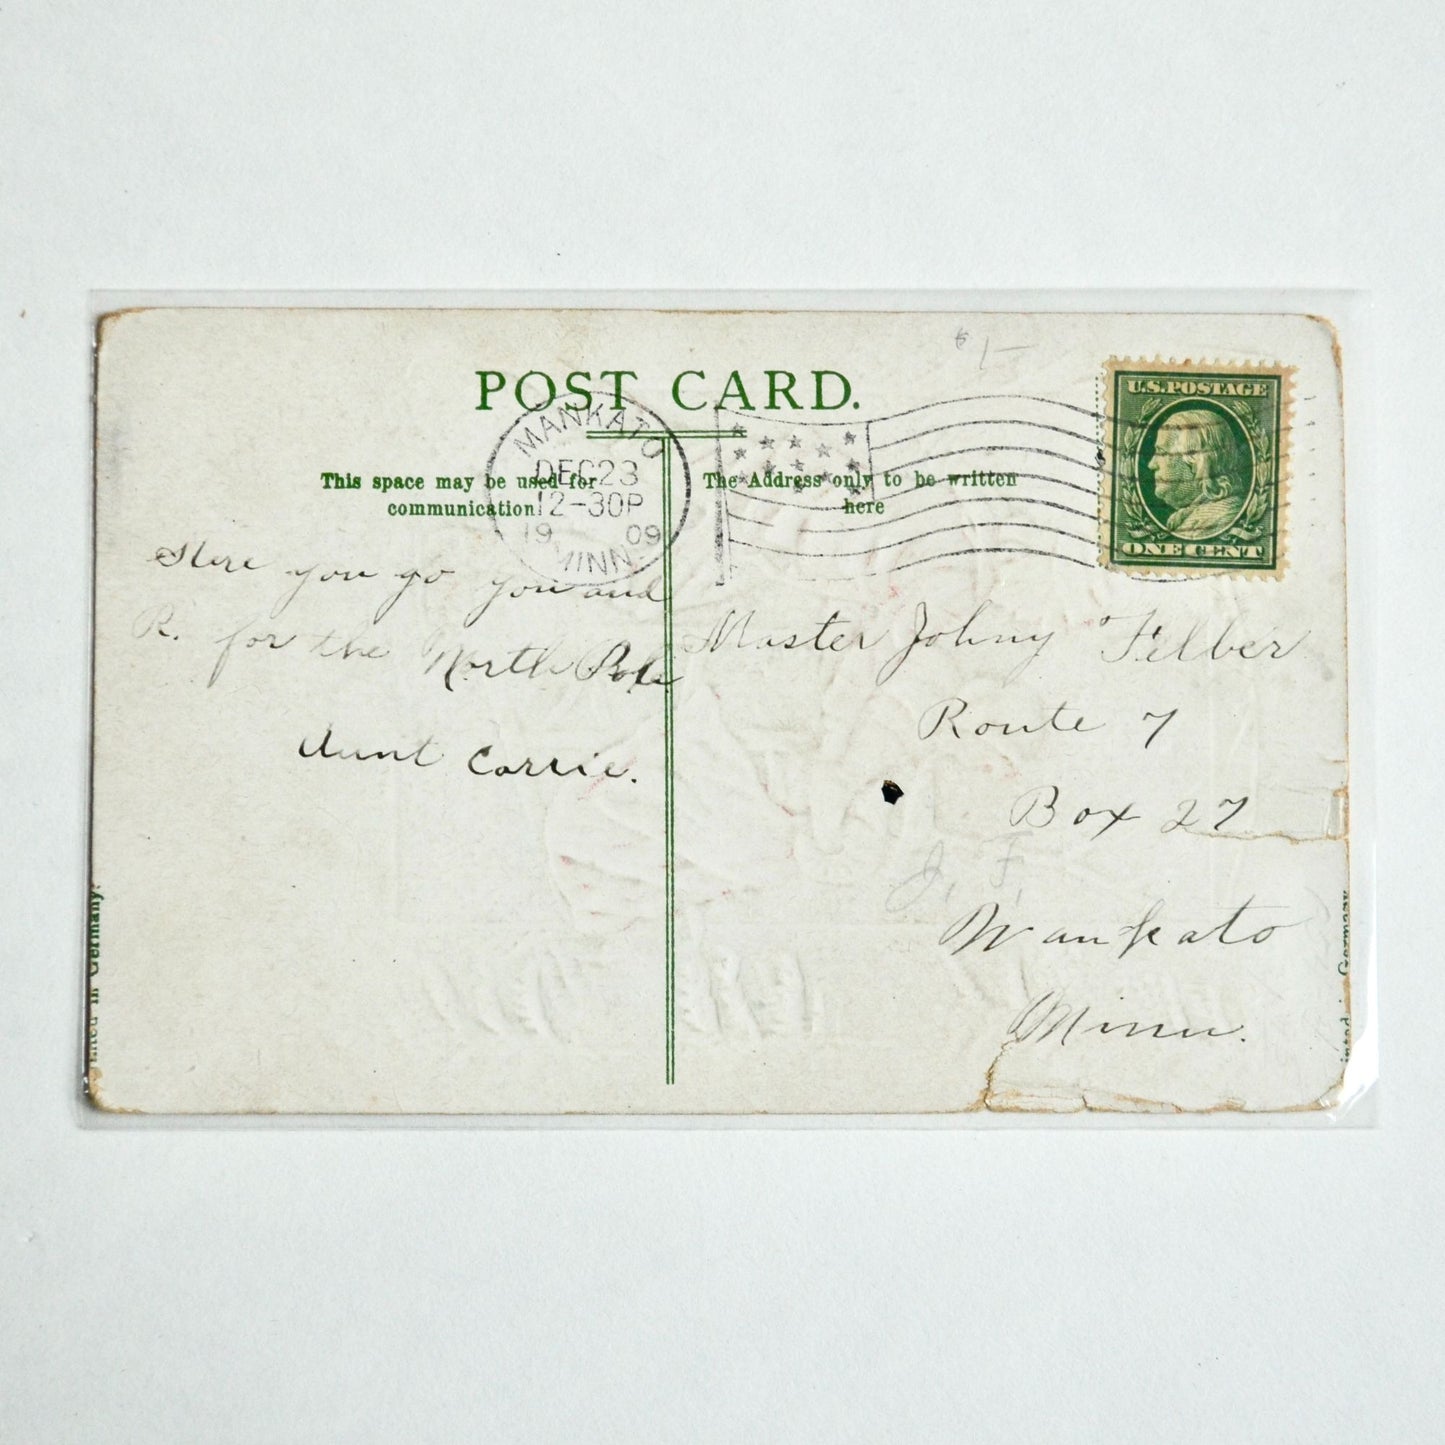 $1-
POST CARD.
U.S. POSTAGE
ONE CENT
MANKATO
DEC 23
12-30P
19 09
MINN.
This space may be used for
communication
The Address only to be written
here
Here you go you and
R. for the North Pole
Aunt Carrie.
Master Johny Filber
Route 7
Box 27
J. F.
Mankato
Minn.
Printed in Germany.
Printed in Germany